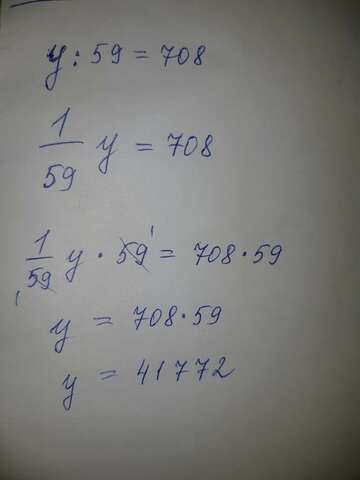 y : 59 = 708
1/59 y = 708
1/59 y · 59 = 708 · 59
y = 708 · 59
y = 41772